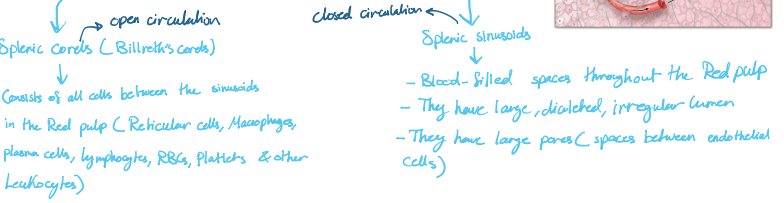 open circulation
Splenic cords (Billroth's cords)
Consists of all cells between the sinusoids
in the Red pulp (Reticular cells, Macrophages,
plasma cells, lymphocytes, RBCs, Platlets & other
Leukocytes)
closed circulation
Splenic sinusoids
- Blood-filled spaces throughout the Red pulp
- They have large, dialated, irregular lumen
- They have large pores (spaces between endothelial
cells)